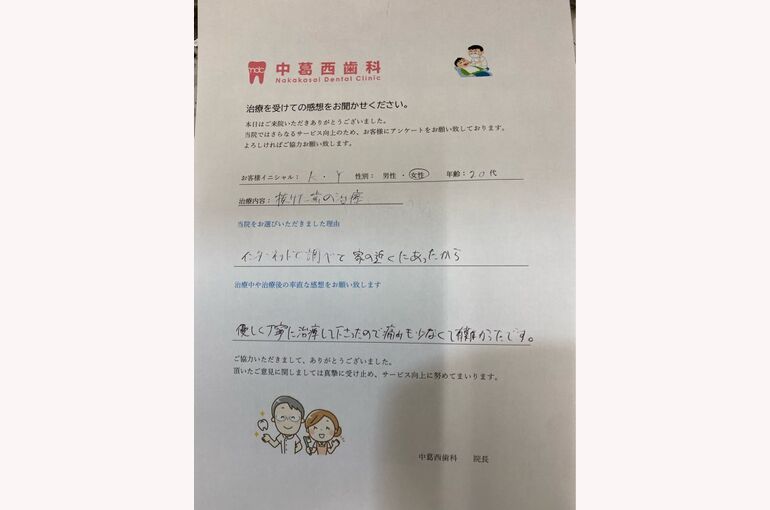 TDC 中葛西歯科
Nakakasai Dental Clinic
治療を受けての感想をお聞かせください。
本日はご来院いただきありがとうございました。
当院ではさらなるサービス向上のため、お客様にアンケートをお願い致しております。
よろしければご協力お願い致します。
お客様イニシャル： K ・ Y 性別： 男性 ・ 女性 年齢：20代
治療内容： 抜けた歯の治療
当院をお選びいただきました理由
インターネットで調べて家の近くにあったから
治療中や治療後の率直な感想をお願い致します
優しく丁寧に治療して下さったので痛みも少なくて有難かったです。
ご協力いただきまして、ありがとうございました。
頂いたご意見に関しましては真摯に受け止め、サービス向上に努めてまいります。
中葛西歯科 院長